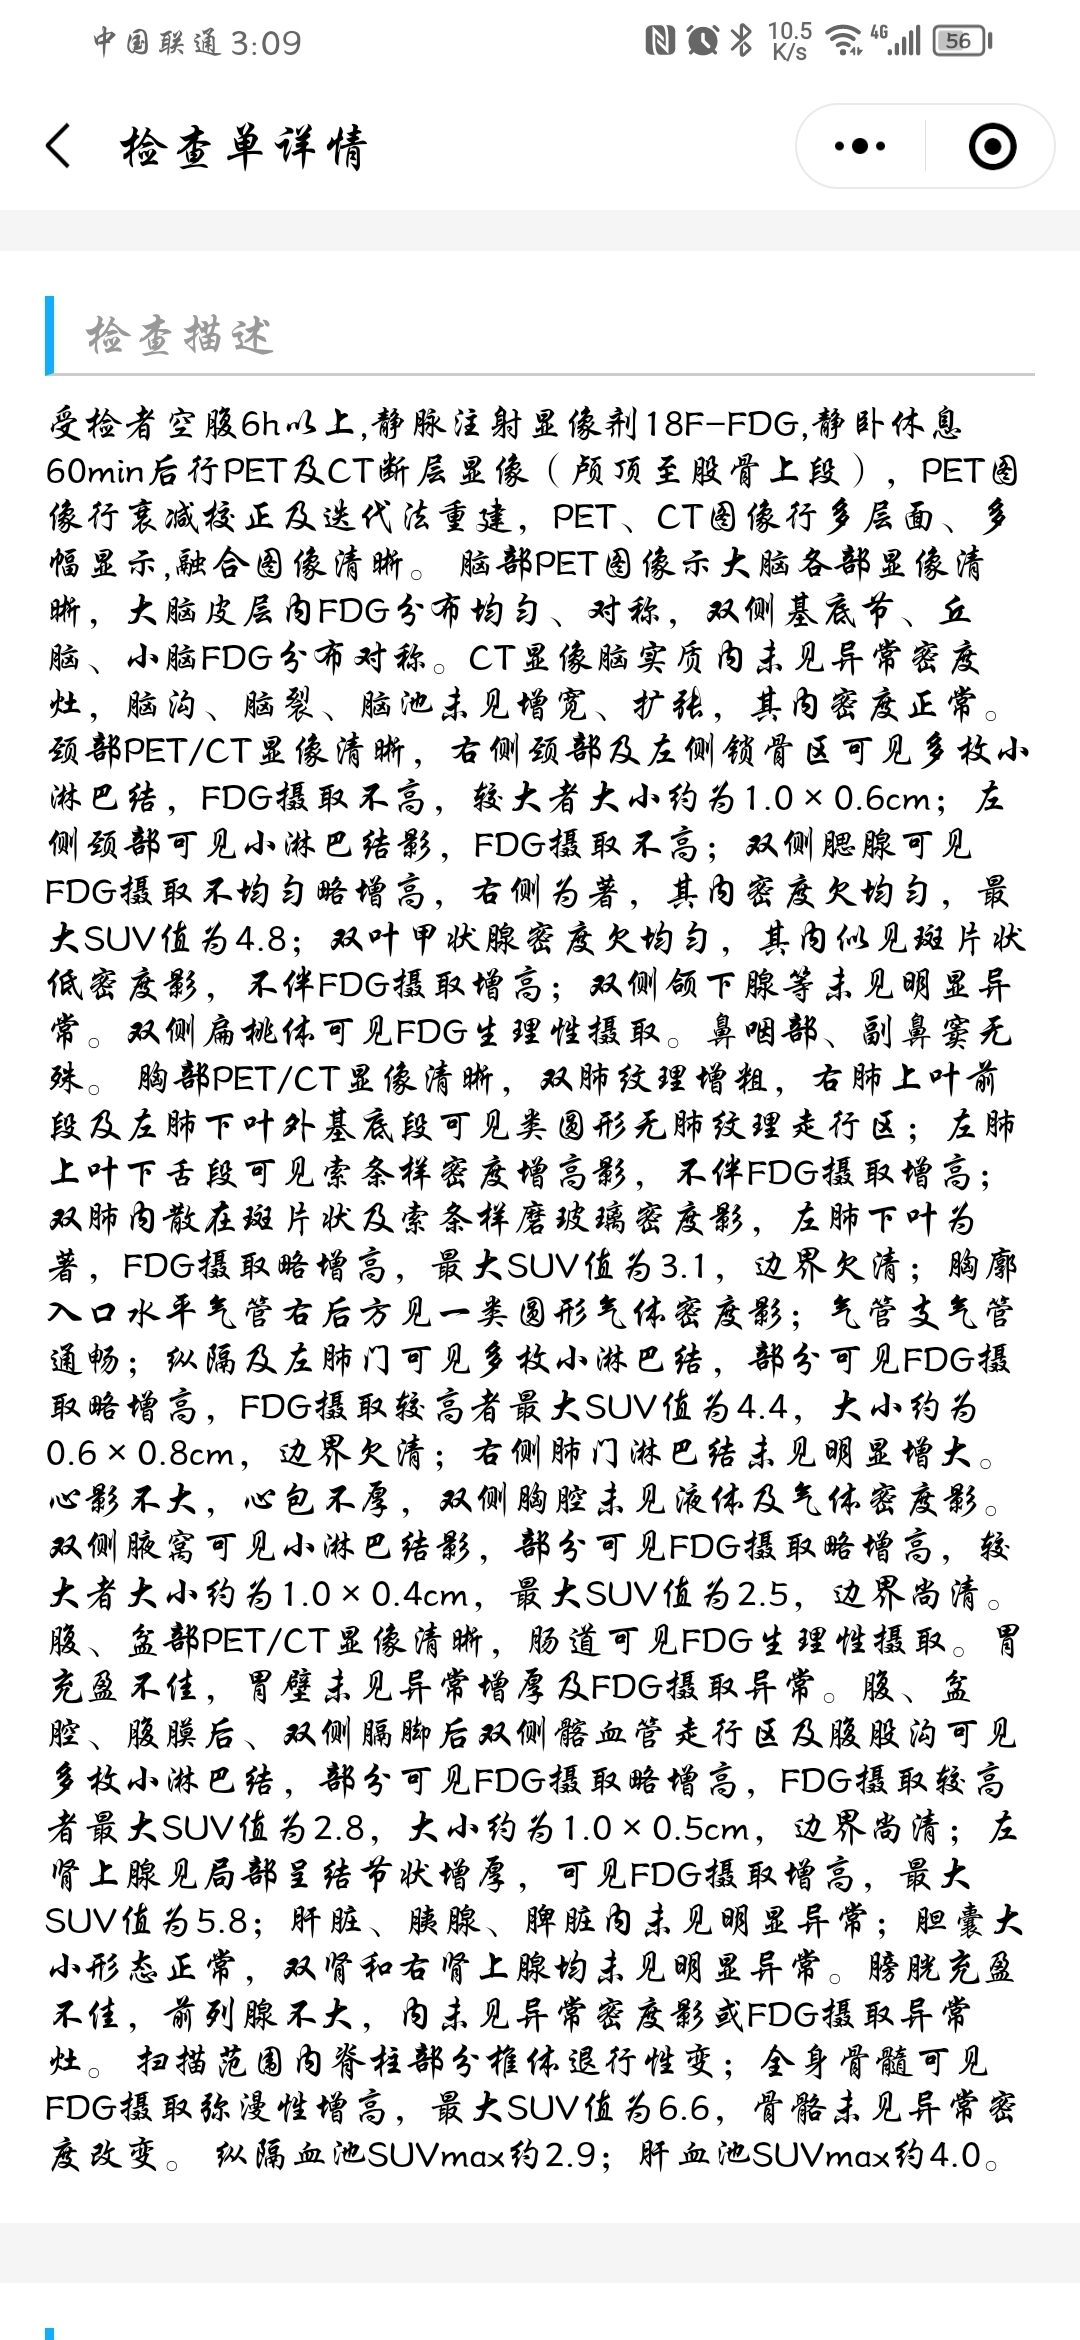 中国联通 3:09
10.5 K/s
4G
56
检查单详情
检查描述
受检者空腹6h以上,静脉注射显像剂18F-FDG,静卧休息
60min后行PET及CT断层显像（颅顶至股骨上段），PET图
像行衰减校正及迭代法重建，PET、CT图像行多层面、多
幅显示,融合图像清晰。 脑部PET图像示大脑各部显像清
晰，大脑皮层内FDG分布均匀、对称，双侧基底节、丘
脑、小脑FDG分布对称。CT显像脑实质内未见异常密度
灶，脑沟、脑裂、脑池未见增宽、扩张，其内密度正常。
颈部PET/CT显像清晰，右侧颈部及左侧锁骨区可见多枚小
淋巴结，FDG摄取不高，较大者大小约为1.0×0.6cm；左
侧颈部可见小淋巴结影，FDG摄取不高；双侧腮腺可见
FDG摄取不均匀略增高，右侧为著，其内密度欠均匀，最
大SUV值为4.8；双叶甲状腺密度欠均匀，其内似见斑片状
低密度影，不伴FDG摄取增高；双侧颌下腺等未见明显异
常。双侧扁桃体可见FDG生理性摄取。鼻咽部、副鼻窦无
殊。 胸部PET/CT显像清晰，双肺纹理增粗，右肺上叶前
段及左肺下叶外基底段可见类圆形无肺纹理走行区；左肺
上叶下舌段可见索条样密度增高影，不伴FDG摄取增高；
双肺内散在斑片状及索条样磨玻璃密度影，左肺下叶为
著，FDG摄取略增高，最大SUV值为3.1，边界欠清；胸廓
入口水平气管右后方见一类圆形气体密度影；气管支气管
通畅；纵隔及左肺门可见多枚小淋巴结，部分可见FDG摄
取略增高，FDG摄取较高者最大SUV值为4.4，大小约为
0.6×0.8cm，边界欠清；右侧肺门淋巴结未见明显增大。
心影不大，心包不厚，双侧胸腔未见液体及气体密度影。
双侧腋窝可见小淋巴结影，部分可见FDG摄取略增高，较
大者大小约为1.0×0.4cm，最大SUV值为2.5，边界尚清。
腹、盆部PET/CT显像清晰，肠道可见FDG生理性摄取。胃
充盈不佳，胃壁未见异常增厚及FDG摄取异常。腹、盆
腔、腹膜后、双侧膈脚后双侧髂血管走行区及腹股沟可见
多枚小淋巴结，部分可见FDG摄取略增高，FDG摄取较高
者最大SUV值为2.8，大小约为1.0×0.5cm，边界尚清；左
肾上腺见局部呈结节状增厚，可见FDG摄取增高，最大
SUV值为5.8；肝脏、胰腺、脾脏内未见明显异常；胆囊大
小形态正常，双肾和右肾上腺均未见明显异常。膀胱充盈
不佳，前列腺不大，内未见异常密度影或FDG摄取异常
灶。 扫描范围内脊柱部分椎体退行性变；全身骨髓可见
FDG摄取弥漫性增高，最大SUV值为6.6，骨骼未见异常密
度改变。 纵隔血池SUVmax约2.9；肝血池SUVmax约4.0。